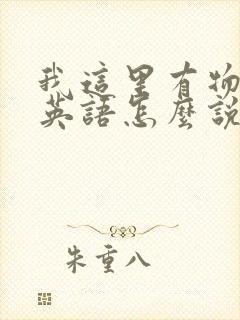 我這里有物
英語怎麼說
朱重八